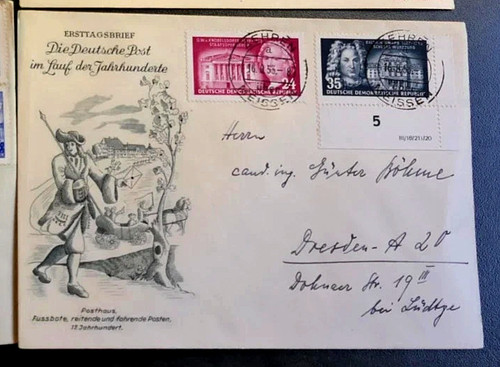 ERSTTAGSBRIEF
Die Deutsche Post
im Lauf der Jahrhunderte
24
DEUTSCHE DEMOKRATISCHE REPUBLIK
35
DEUTSCHE DEMOKRATISCHE REPUBLIK
5
Herrn
cand. ing. Günter Böhme
Dresden-A 20
Dohnaer Str. 19 III
bei Lüdtge
Posthaus,
Fussbote, reitende und fahrende Posten.
18. Jahrhundert.